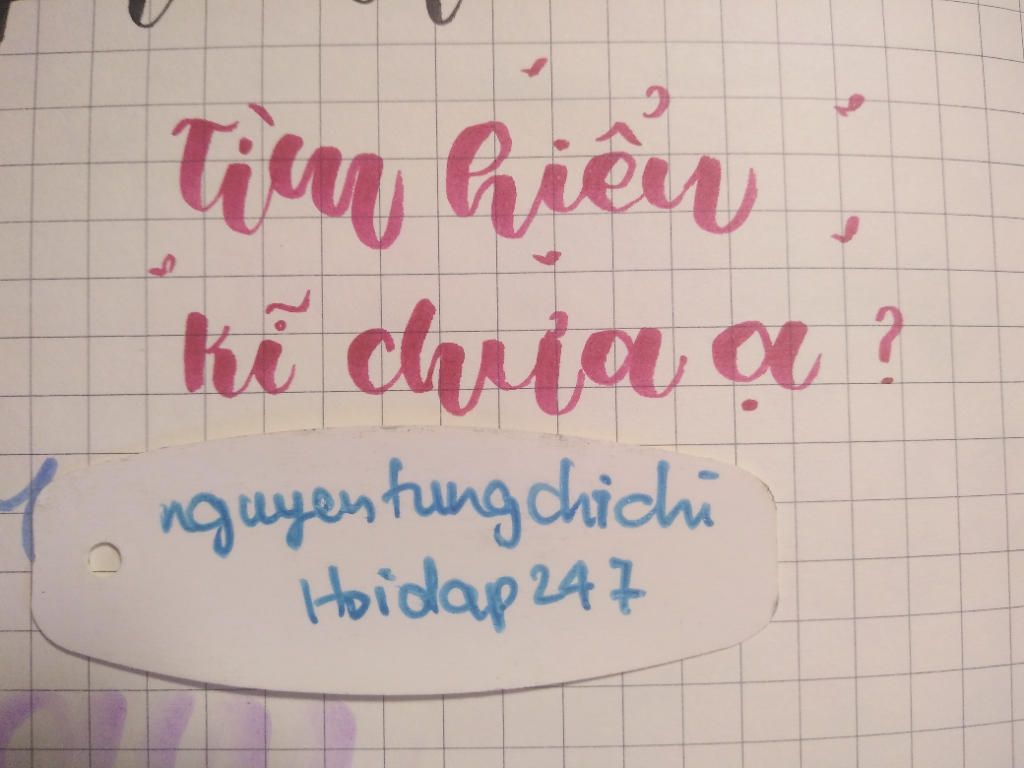 Tìm hiểu
kĩ chưa ạ ?
nguyentungchichi
Hoidap247